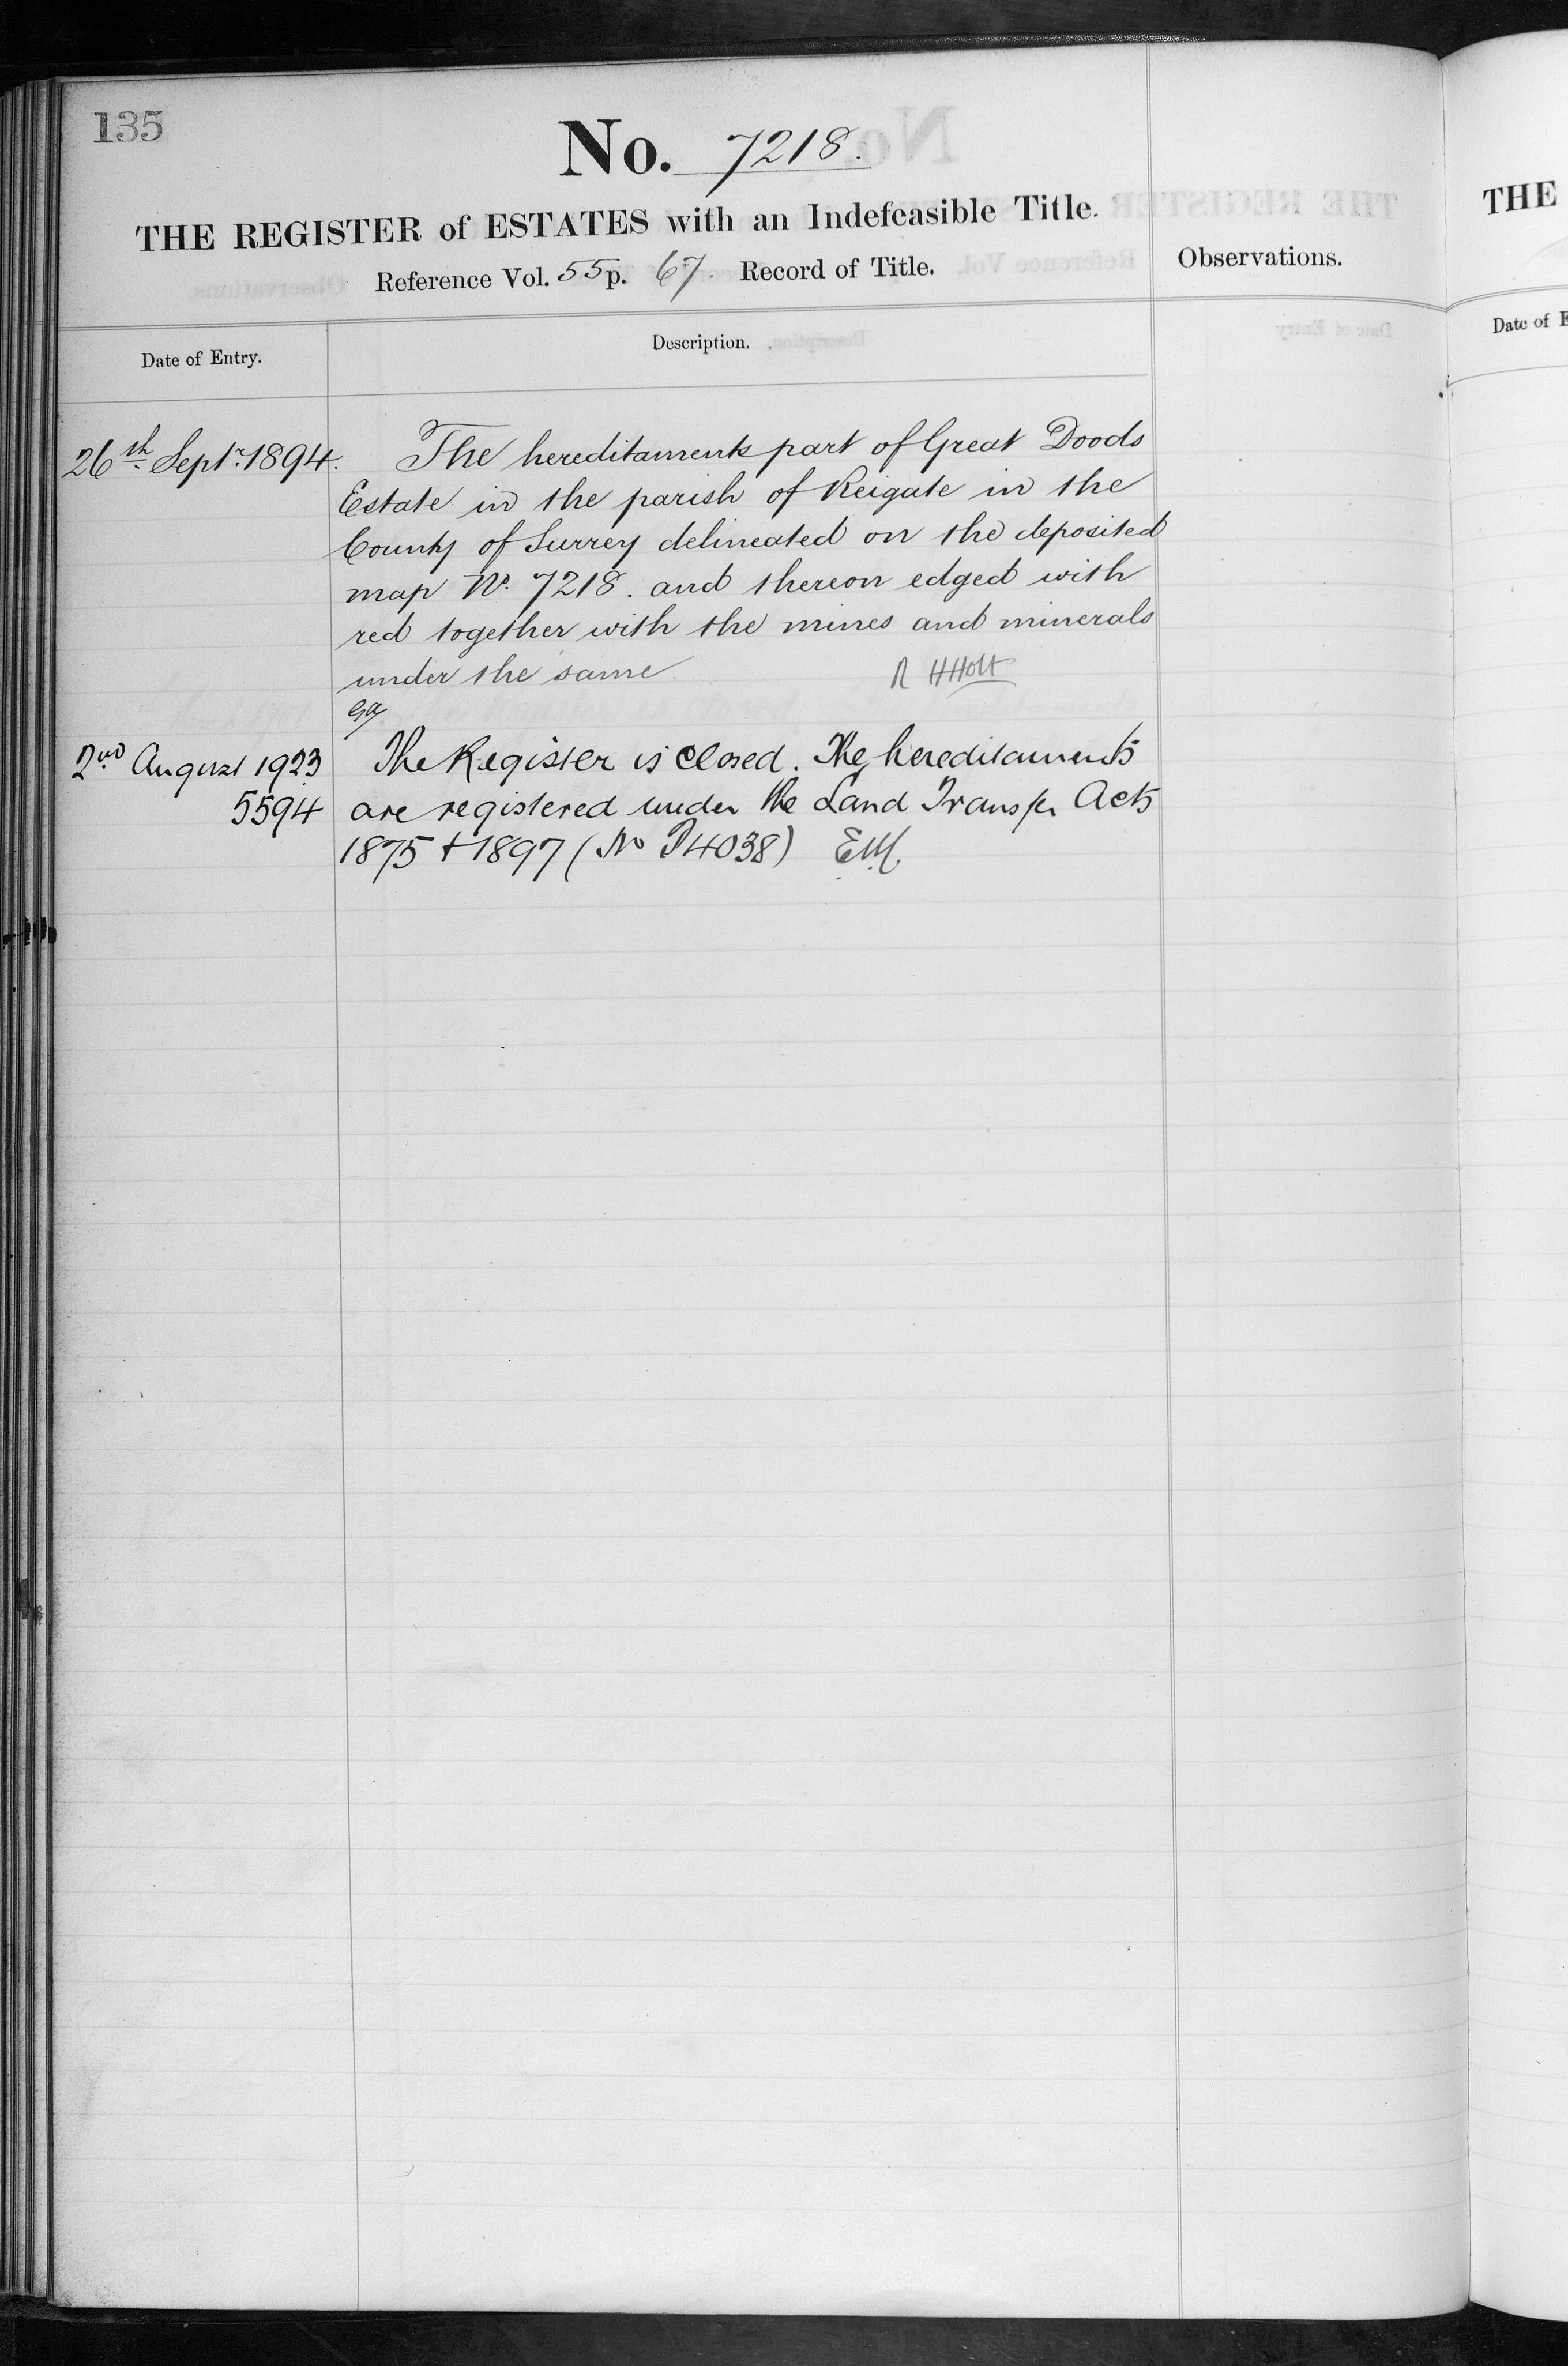 135
No. 7218.
THE REGISTER of ESTATES with an Indefeasible Title.
Reference Vol. 55 p. 67. Record of Title.
Observations.
Date of Entry.
Description.
26th Septr. 1894.
The hereditaments part of Great Doods
Estate in the parish of Reigate in the
County of Surrey delineated on the deposited
map No. 7218. and thereon edged with
red together with the mines and minerals
under the same.
HHolt
2nd August 1923
5594
The Register is closed. The hereditaments
are registered under the Land Transfer Acts
1875 + 1897 (No P4038)
THE
Date of E